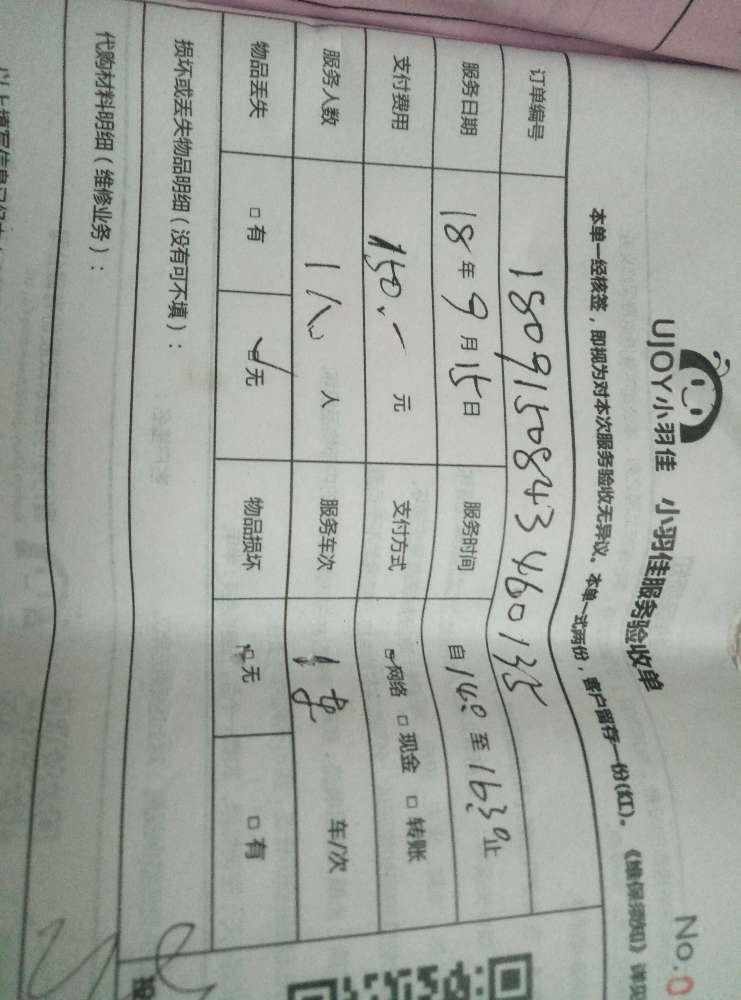 No.0
UJOY小羽佳 小羽佳服务验收单
本单一经核签，即视为对本次服务验收无异议。本单一式两份，客户留存一份(红)。《维保须知》详见
订单编号 1809150843460135
服务日期 18年9月15日 服务时间 自14:0至16:30止
支付费用 150.- 元 支付方式 网络 □现金 □转账
服务人数 1人 人 服务车次 1车 车/次
物品丢失 □有 ☑无 物品损坏 无 □有
损坏或丢失物品明细（没有可不填）：
代购材料明细（维修业务）：